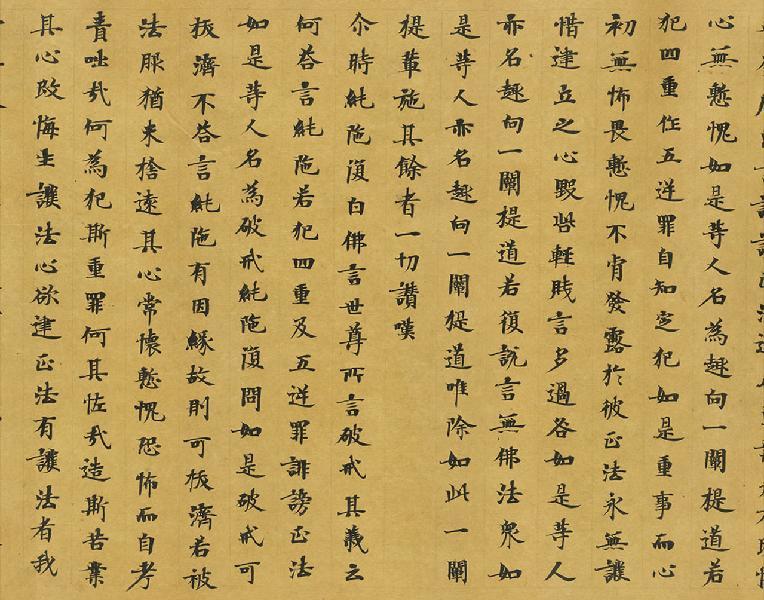 心無慙愧如是等人名為趣向一闡提道若
犯四重作五逆罪自知定犯如是重事而心
初無怖畏慙愧不肯發露於彼正法永無護
惜建立之心毀呰輕賤言多過咎如是等人
亦名趣向一闡提道若復說言無佛法眾如
是等人亦名趣向一闡提道唯除如此一闡
提輩施其餘者一切讚嘆
尒時純陁復白佛言世尊所言破戒其義云
何答言純陁若犯四重及五逆罪誹謗正法
如是等人名為破戒純陁復問如是破戒可
拔濟不答言純陁有因緣故則可拔濟若被
法服猶未捨遠其心常懷慙愧恐怖而自考
責咄哉何為犯斯重罪何其恠哉造斯苦業
其心改悔生護法心欲建正法有護法者我